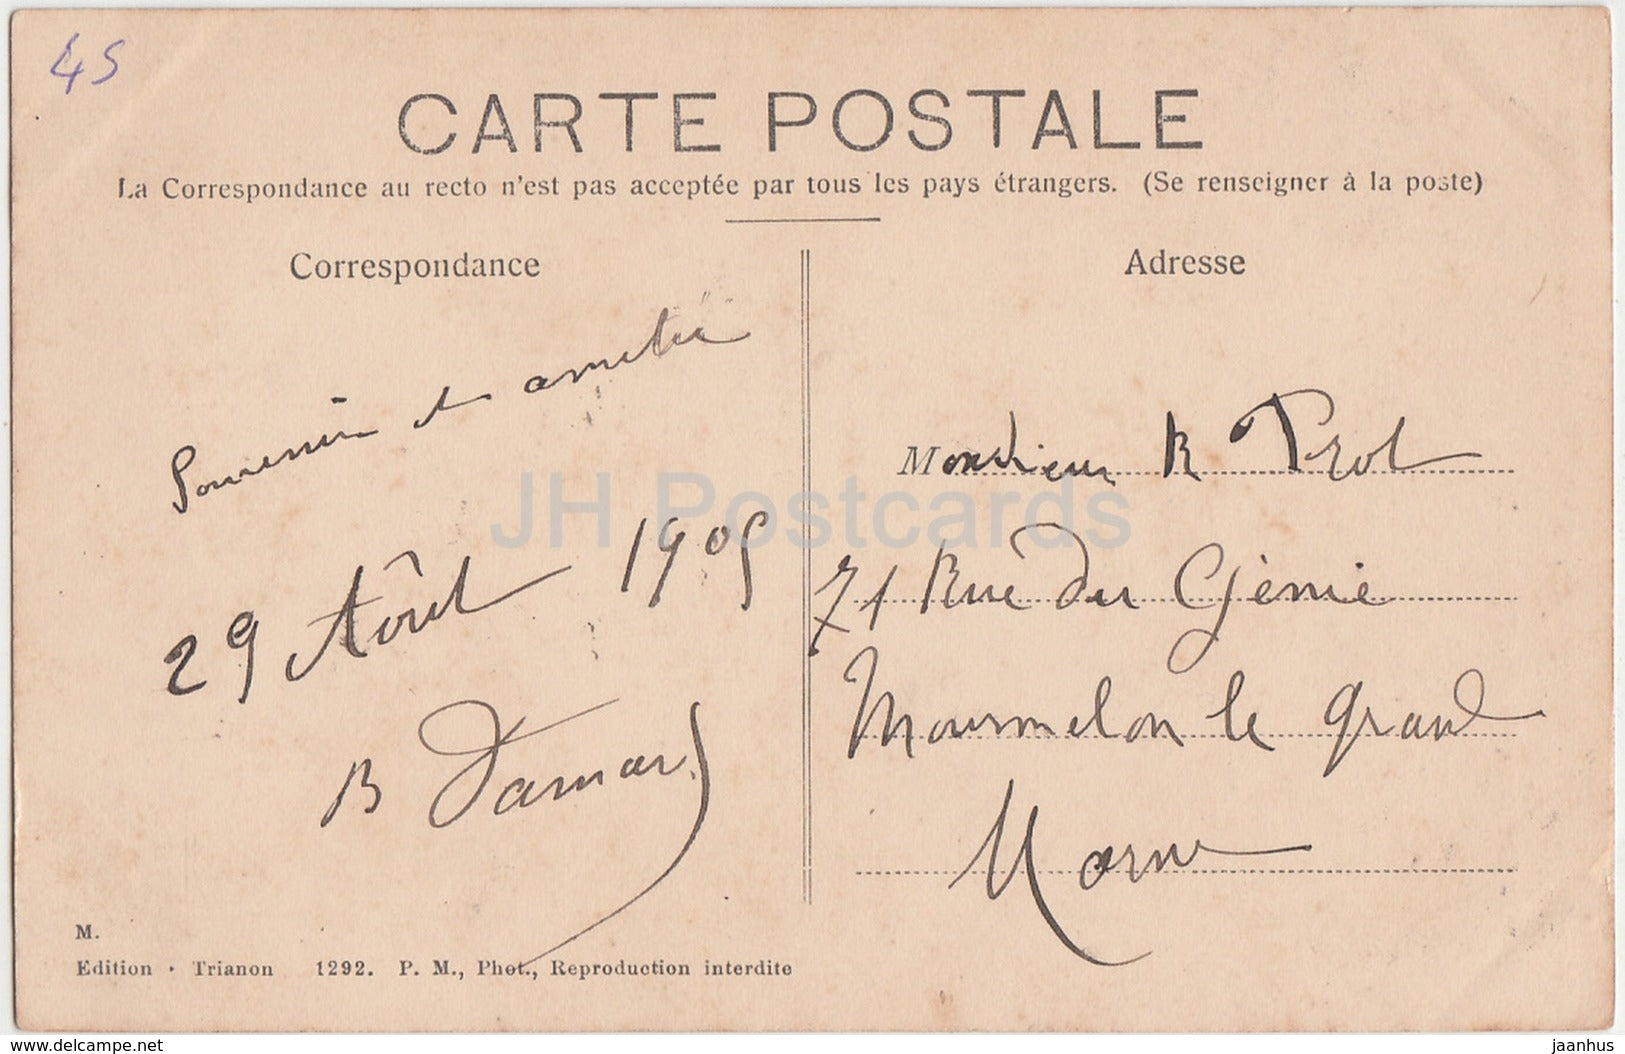 45
CARTE POSTALE
La Correspondance au recto n'est pas acceptée par tous les pays étrangers. (Se renseigner à la poste)
Correspondance
Souvenir et amitié
29 Août 1905
B Damard
Adresse
Monsieur R Prot
71 Rue du Génie
Mourmelon le grand
Marne
M.
Edition · Trianon 1292. P. M., Phot., Reproduction interdite
JH Postcards
www.delcampe.net
jaanhus